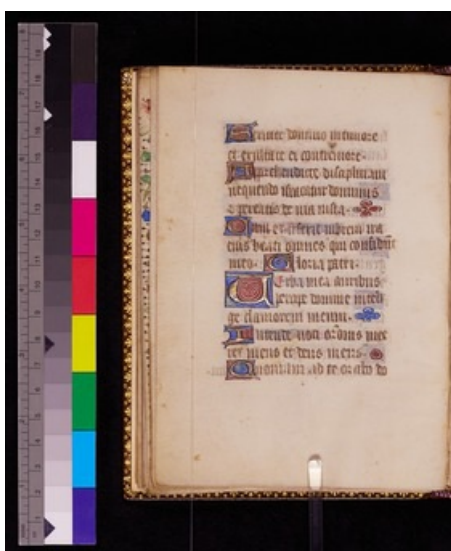 Seruite domino in timore
et exultate ei cum tremore
Apprehendite disciplinam
nequando irascatur dominus
et pereatis de via iusta
Cum exarserit in breui ira
eius beati omnes qui confidunt
in eo Gloria patri
Verba mea auribus
percipe domine intelli
ge clamorem meum
Intende uoci oronis mee
rex meus et deus meus
Quoniam ad te orabo do